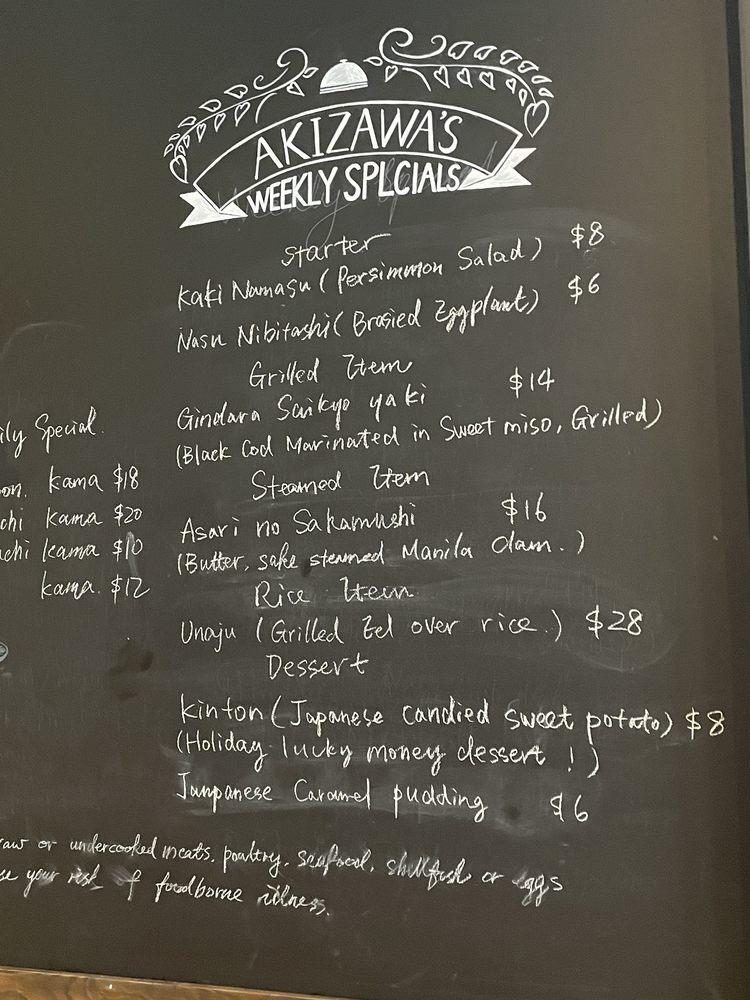 AKIZAWA'S
WEEKLY SPLCIALS
Starter
Kaki Namasu (Persimmon Salad) $8
Nasu Nibitashi (Brasied Eggplant) $6
Grilled Item
Gindara Saikyo yaki $14
(Black Cod Marinated in Sweet miso, Grilled)
Steamed Item
Asari no Sakamushi $16
(Butter, sake steamed Manila clam.)
Rice Item
Unaju (Grilled Eel over rice.) $28
Dessert
Kinton (Japanese candied sweet potato) $8
(Holiday lucky money dessert!)
Janpanese Caramel pudding $6
ily Special.
on. kama $18
chi kama $20
achi kama $10
kama. $12
raw or undercooked meats, poultry, seafood, shellfish or eggs
se your risk of foodborne illness.